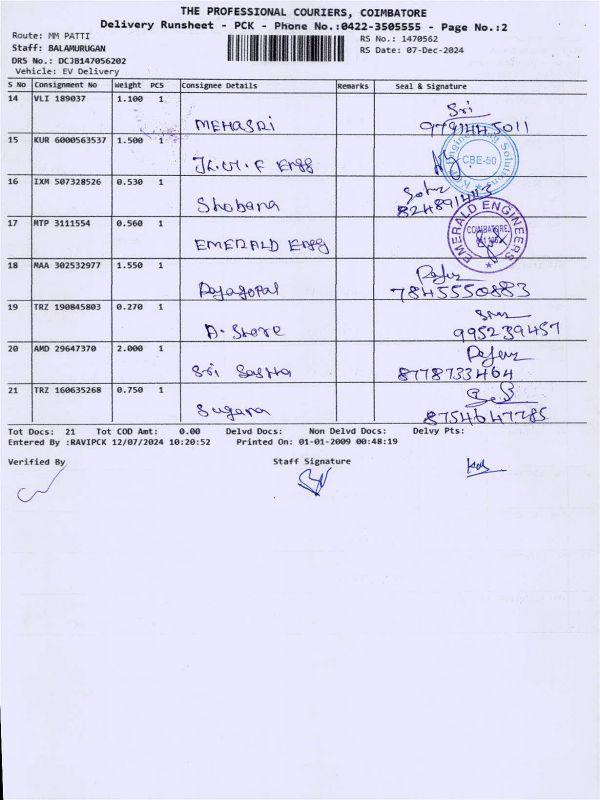 THE PROFESSIONAL COURIERS, COIMBATORE
Delivery Runsheet - PCK - Phone No.:0422-3505555 - Page No.:2
Route: MM PATTI RS No.: 1470562
Staff: BALAMURUGAN RS Date: 07-Dec-2024
DRS No.: DCJB147056202
Vehicle: EV Delivery
S No Consignment No Weight PCS Consignee Details Remarks Seal & Signature
14 VLI 189037 1.100 1 MEHASRI Sri
15 KUR 6000563537 1.500 1 Engg CBE-50
16 IXM 507328526 0.530 1 Shobana
17 MTP 3111554 0.560 1 EMERALD Engg EMERALD ENGINEERS COIMBATORE
18 MAA 302532977 1.550 1 Rajagopal 7845550883
19 TRZ 190845803 0.270 1 A. Store 995239457
20 AMD 29647370 2.000 1 Sri Sastha 8778733464
21 TRZ 160635268 0.750 1 Sugana 8754647785
Tot Docs: 21 Tot COD Amt: 0.00 Delvd Docs: Non Delvd Docs: Delvy Pts:
Entered By :RAVIPCK 12/07/2024 10:20:52 Printed On: 01-01-2009 00:48:19
Verified By Staff Signature